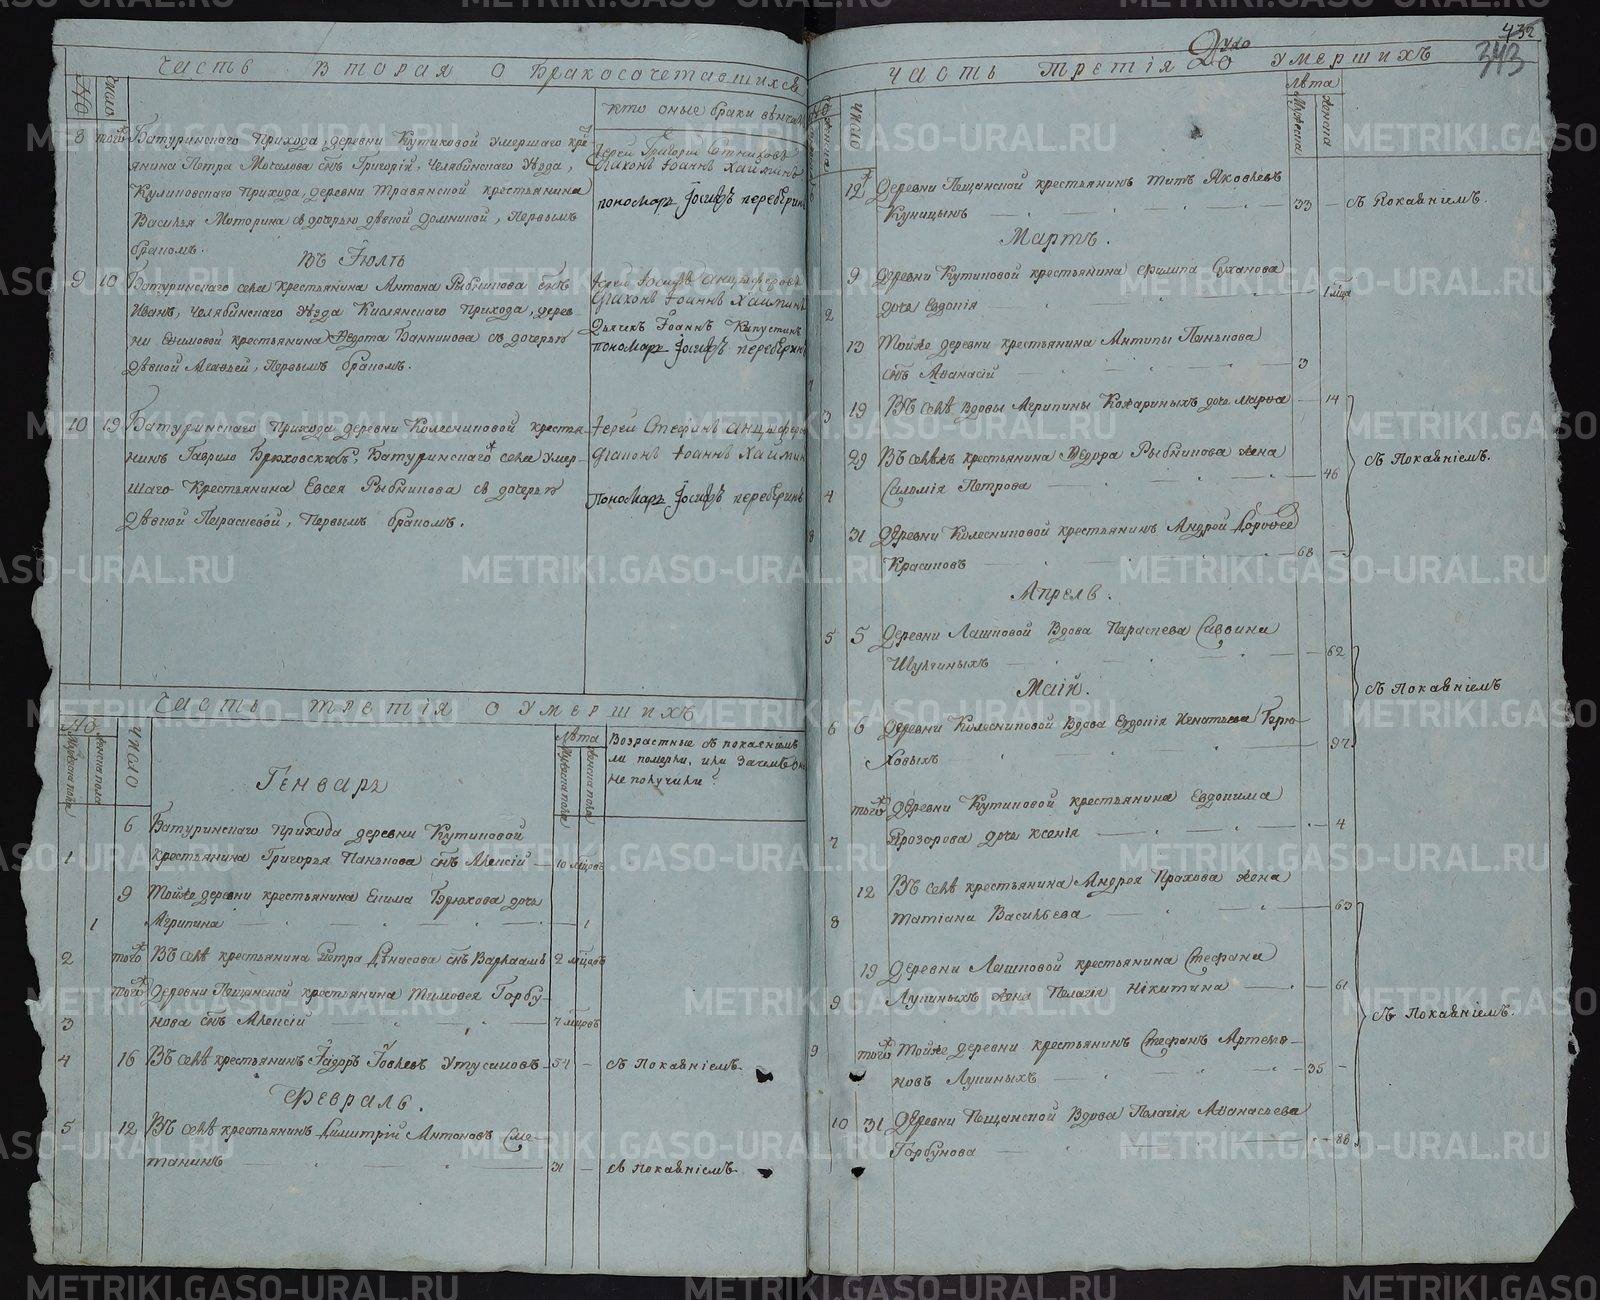 Часть вторая о бракосочетавшихся
Число
кто оные браки венчал
8 того Батуринскаго прихода, деревни Кутиковой умершаго кре
янина Петра Мокалова сынъ Григорій, Челябинскаго уезда,
Куликовскаго прихода, деревни Травянской крестьянина
Василья Моторина съ дочерью девкой Домникой, первымъ
бракомъ.
Іерей Григорій
Діаконъ Іоаннъ
пономарь Іосифъ
Въ Іюлѣ
9 10 Батуринскаго села крестьянина Антона Рыбникова сынъ
Иванъ, Челябинскаго уезда Кислянскаго прихода, дерев-
ни крестьянина Федота Банникова съ дочерью
девкой первымъ бракомъ.
Іерей Іосифъ
Діаконъ Іоаннъ
Дьячекъ Іоаннъ
пономарь Іосифъ
10 19 Батуринскаго прихода деревни Колесниковой крестья-
нинъ Гаврило Батуринскаго села умер-
шаго крестьянина Евсея Рыбникова съ дочерью
девкой Парасковой, первымъ бракомъ.
Іерей Стефанъ
Діаконъ Іоаннъ
пономарь Іосифъ
Часть третія о умершихъ
Число
Лѣта
Мужеска пола
Женска пола
Возрастные съ покаяніемъ
ли померли, или зачемъ
не получили?
Генварь
6 Батуринскаго прихода деревни Кутиковой
1 крестьянина Григорья Панькова сынъ Алексій — 10 мцовъ
9 Тойже деревни крестьянина Екима Брюхова дочь
1 Агрипина — 1
2 того Въ селѣ крестьянина Петра Денисова сынъ Варлаамъ 2 мцовъ
того Деревни Пещанской крестьянина Тимофея Горбу-
3 нова сынъ Алексій — 7 мцовъ
4 16 Въ селѣ крестьянинъ Федоръ 54 — съ покаяніемъ.
Февраль.
5 12 Въ селѣ крестьянинъ Димитрій Антоновъ Сме-
танинъ — 31 — съ покаяніемъ.
432
343
Часть третія о умершихъ
Число
Лѣта
Мужеска
Женска
12 Деревни Пещанской крестьянинъ Титъ Яковлевъ
Куницынъ — 33 — съ покаяніемъ.
Мартъ.
9 Деревни Кутиковой крестьянина Филипа Суханова
2 дочь Евдокія — 1 мца
13 Тойже деревни крестьянина Антипы Панькова
7 сынъ Афанасій — 3
3 19 Въ селѣ вдовы Агрипины дочь Марфа — 14
29 Въ селѣ крестьянина Федора Рыбникова жена
4 Саломія Петрова — 46
съ покаяніемъ.
8 31 Деревни Колесниковой крестьянинъ Андрей Дорофее
Красиковъ — 68 —
Апрель.
5 5 Деревни Лашковой вдова Параскева Саввина
Шулгиныхъ — 62
Маій.
съ покаяніемъ
6 6 Деревни Колесниковой вдова Евдокія Игнатьева Брю-
ховыхъ — 92
того Деревни Кутиковой крестьянина Евдокима
7 Прозорова дочь Ксенія — 4
12 Въ селѣ крестьянина Андрея Прахова жена
8 Татіана Васильева — 63
19 Деревни Лашковой крестьянина Стефана
9 Лупиныхъ жена Пелагія Никитина — 61
съ покаяніемъ.
9 того Тойже деревни крестьянинъ Стефанъ Артемо-
новъ Лупиныхъ — 35 —
10 31 Деревни Пещанской вдова Пелагія Афанасьева
Горбунова — 88